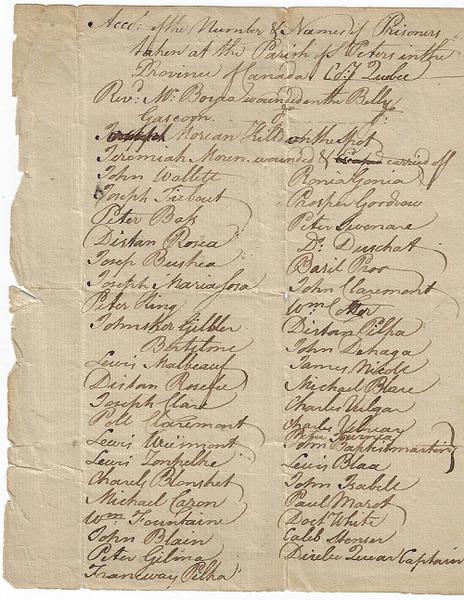 Acct. of the Number & Names of Prisoners
taken at the Parish of St Peters in the
Province of Canada Cy. Quebec
Revd. Mr. Borea wounded in the Belly
Gascorn. do
Norean Killd on the spot
Jeremiah Moren wounded & carried off
John Wallett
Joseph Biebout
Peter Bass
Distan Rosea
Josep Bushea
Joseph Maria Josa
Peter King
Gibler
Bertilme
Lewis Malbeauf
Distorn Rosefee
Joseph Clare
Poll Claremont
Lewis Wiemont
Lewis Tonpelhe
Charels Blonshet
Michael Caron
Wm Fountaine
John Blain
Peter Gilma
Franceway Pilha
Ronia Gonia
Prosper Goodrow
Peter Simonare
Do. Duschat
Basil Proo
John Claremont
Wm Cotter
Distorn Pilha
John Dehaga
James Nicole
Michael Blare
Charles Vulgar
Charles Velneay
John Baptist martin
Lewis Blaa
John Isabell
Paul Marot
Doct White
Caleb Stenser
Captain